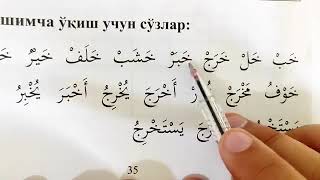 шимча ўқиш учун сўзлар:
خَبْ خَلْ خَرَجْ خَبَرْ خَشَبْ خَلَفْ خَيْرُ
خَوْفُ مَخْرَجُ أَخْرَجَ يُخْرِجُ أَخْبَرَ يُخْبِرُ
يَسْتَخْرِجُ
35